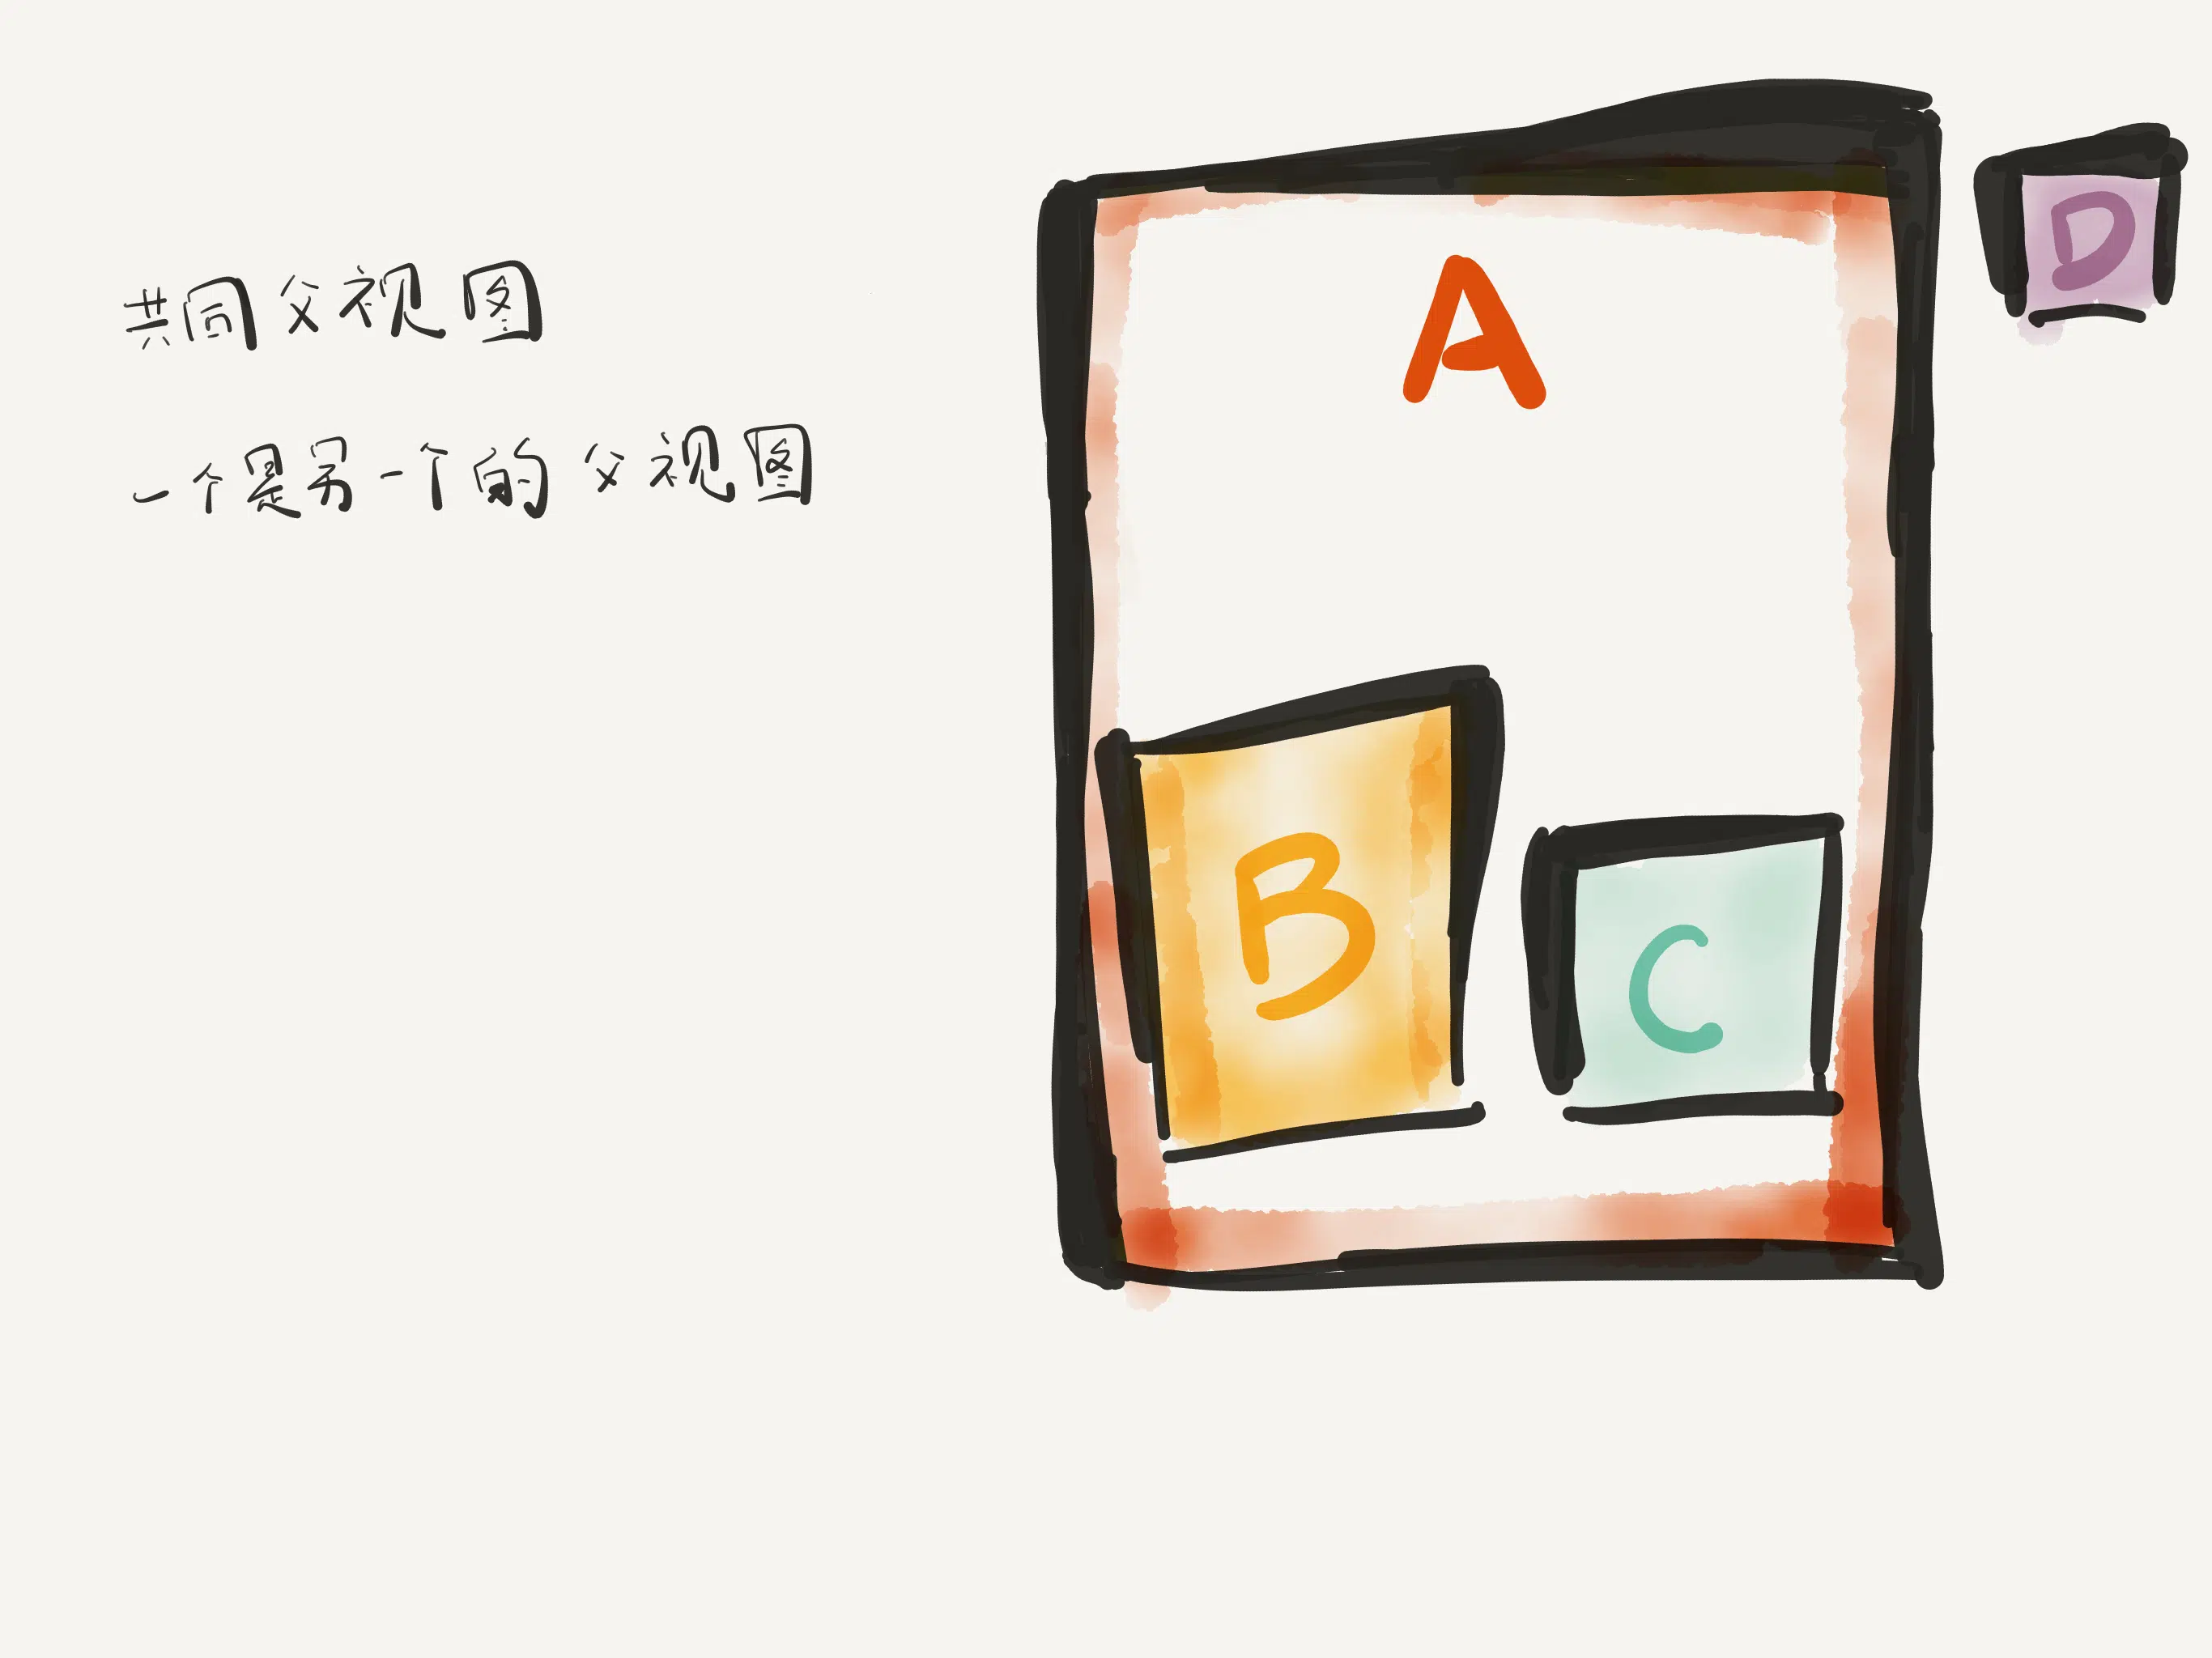 共同父视图
一个是另一个的父视图
A
D
B
C